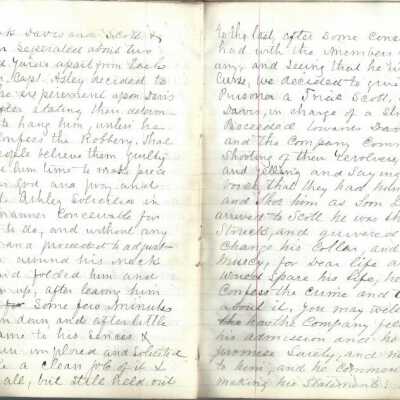 Davis and Scott &
separated about two
Yards apart from Each
Capt. Ashley decided to
experiment upon Davis
after stating their determ
to hang him, unless he
Confess the Robbery. That
people believe them guilty
him time to make peace
God and pray, which
Ashley Solicited in
manner Conceivable for
to do, and without any
proceeded to adjust
around his Neck
folded him and
up, after leaving him
Some few minutes
down, and after little
came to his Senses &
implored and Solicited
a clean job of it &
all, but still held out
to the last, after some cons
had with the members
any, and seeing that he
we decided to give
Prisoner a Trial Scott,
Davis, in charge of a
Proceeded towards Davis
and the Company Comm
Shooting of their Revolvers
and yelling and Saying
that they had hung
and shot him as Soon
arrived to Scott he was th
Struck, and quivered
Change his Collar, and
mercy, for dear life a
would Spare his life, he
Confess the crime and
about it. You may well
the Company fe
his admission and
promise Safety, and
to him, and he commen
making his Statement: